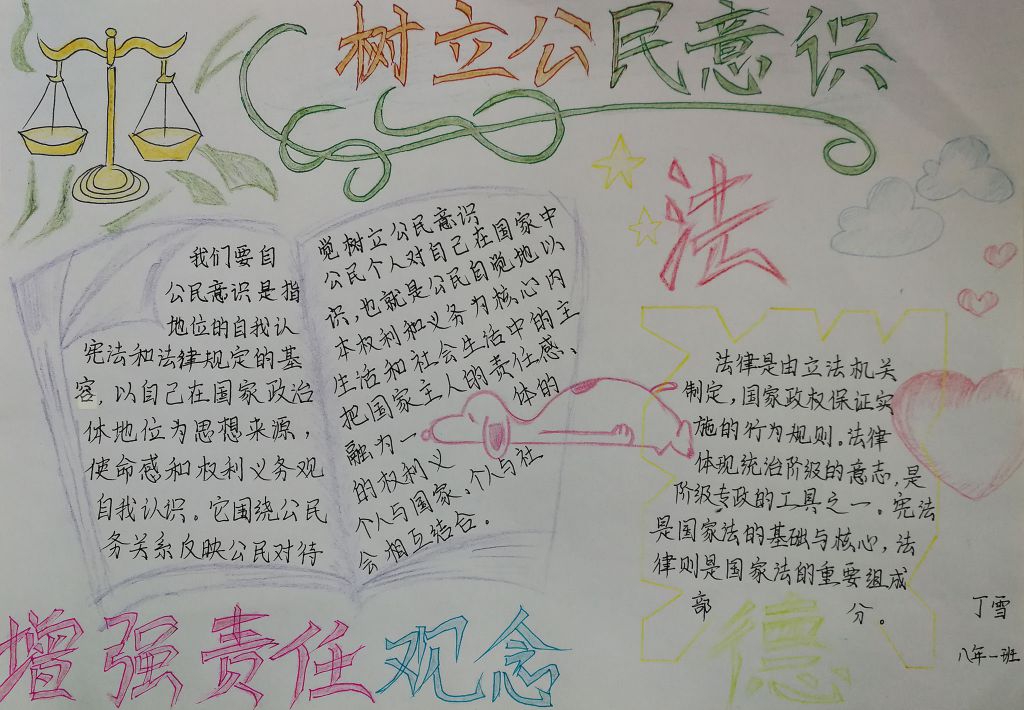 树立公民意识
法
我们要自觉树立公民意识
公民意识是指公民个人对自己在国家中
地位的自我认识,也就是公民自觉地以
宪法和法律规定的基本权利和义务为核心内
容,以自己在国家政治生活和社会生活中的主
体地位为思想来源,把国家主人的责任感、
使命感和权利义务观融为一体的
自我认识。它围绕公民的权利义
务关系反映公民对待个人与国家、个人与社
会相互结合。
法律是由立法机关
制定,国家政权保证实
施的行为规则。法律
体现统治阶级的意志,是
阶级专政的工具之一。宪法
是国家法的基础与核心,法
律则是国家法的重要组成
部分。
德
丁雪
八年一班
增强责任观念